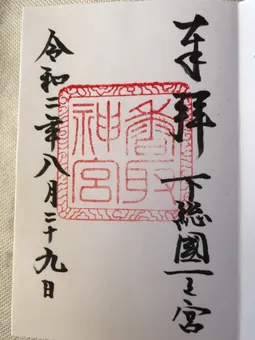 奉拝
下総國一之宮
香取神宮
令和二年八月二十九日